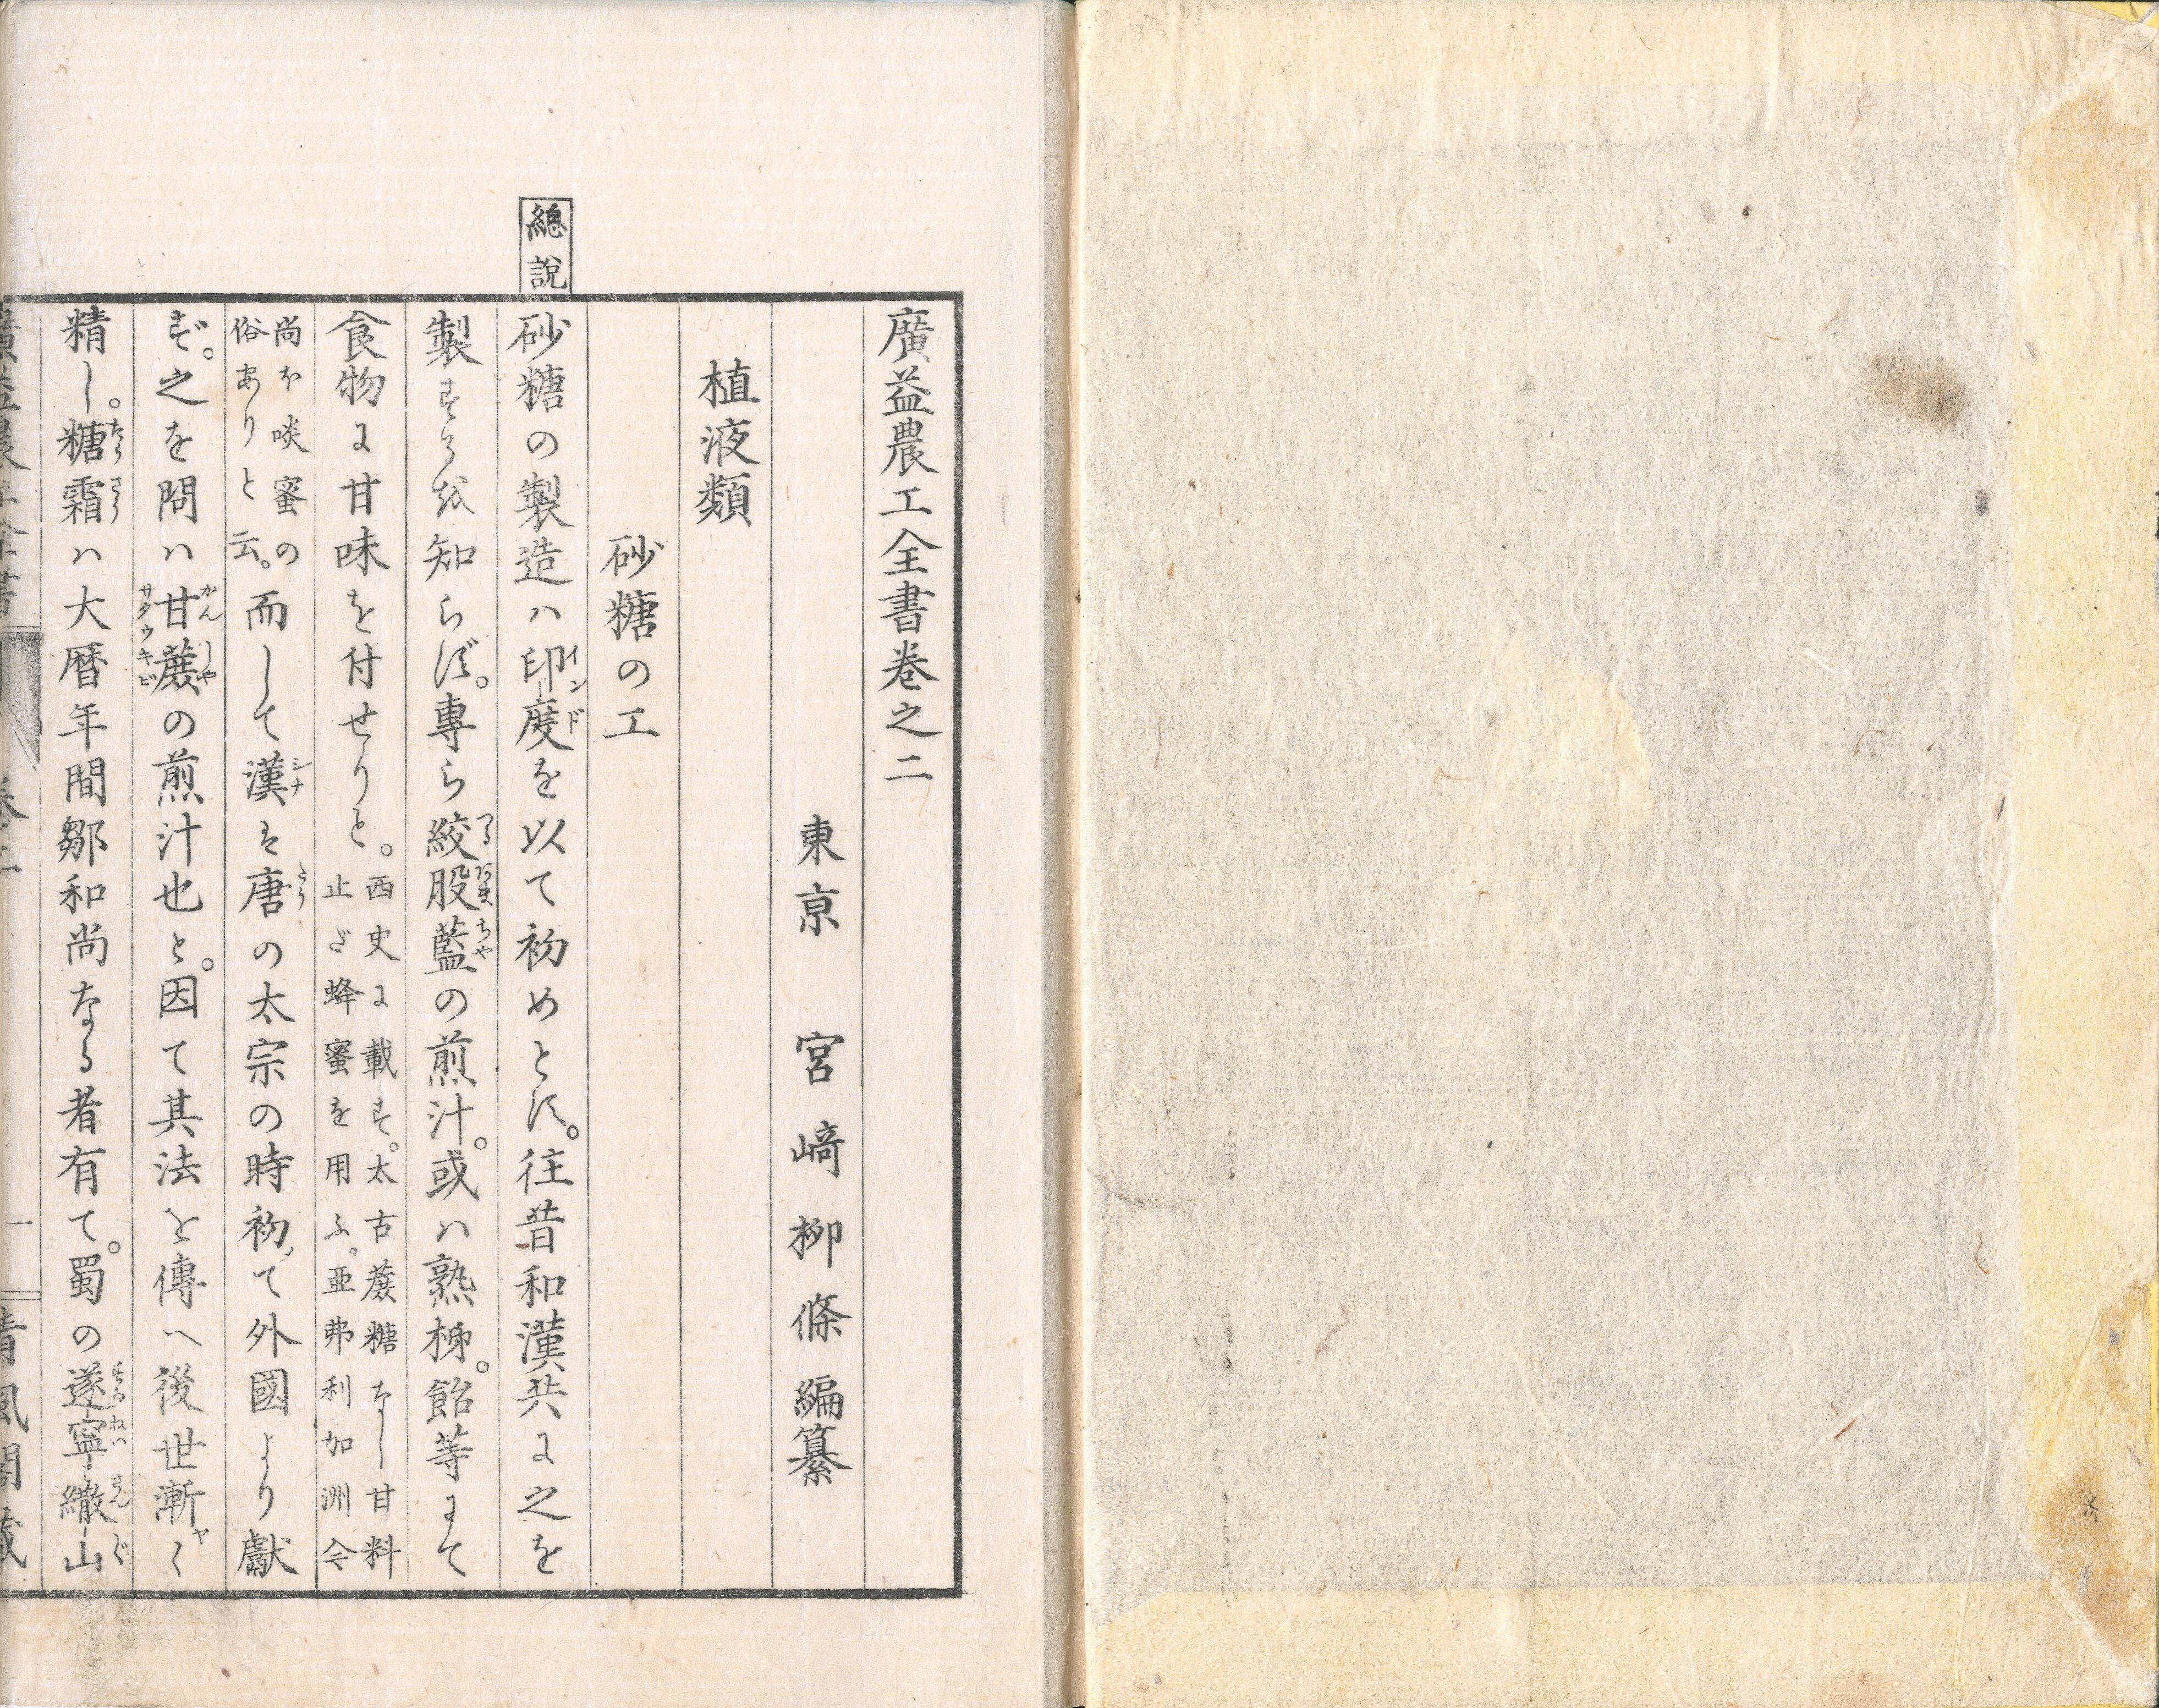 廣益農工全書巻之二
東京 宮﨑柳條編纂
植液類
砂糖の工
總說
砂糖の製造ハ印度を以て初めとす。往昔和漢共に之を
製するを知らず。專ら絞股藍の煎汁。或ハ熟柹。飴等にて
食物に甘味を付せりと。西史に載す。太古蔗糖なし甘料
止だ蜂蜜を用ふ。亞弗利加洲今
尚ほ啖蜜の
俗ありと云。而して漢は唐の太宗の時初て外國より獻
ず。之を問ハ甘蔗の煎汁也と。因て其法を傳へ後世漸く
精し。糖霜ハ大曆年間鄒和尚なる者有て。蜀の遂寧繖山